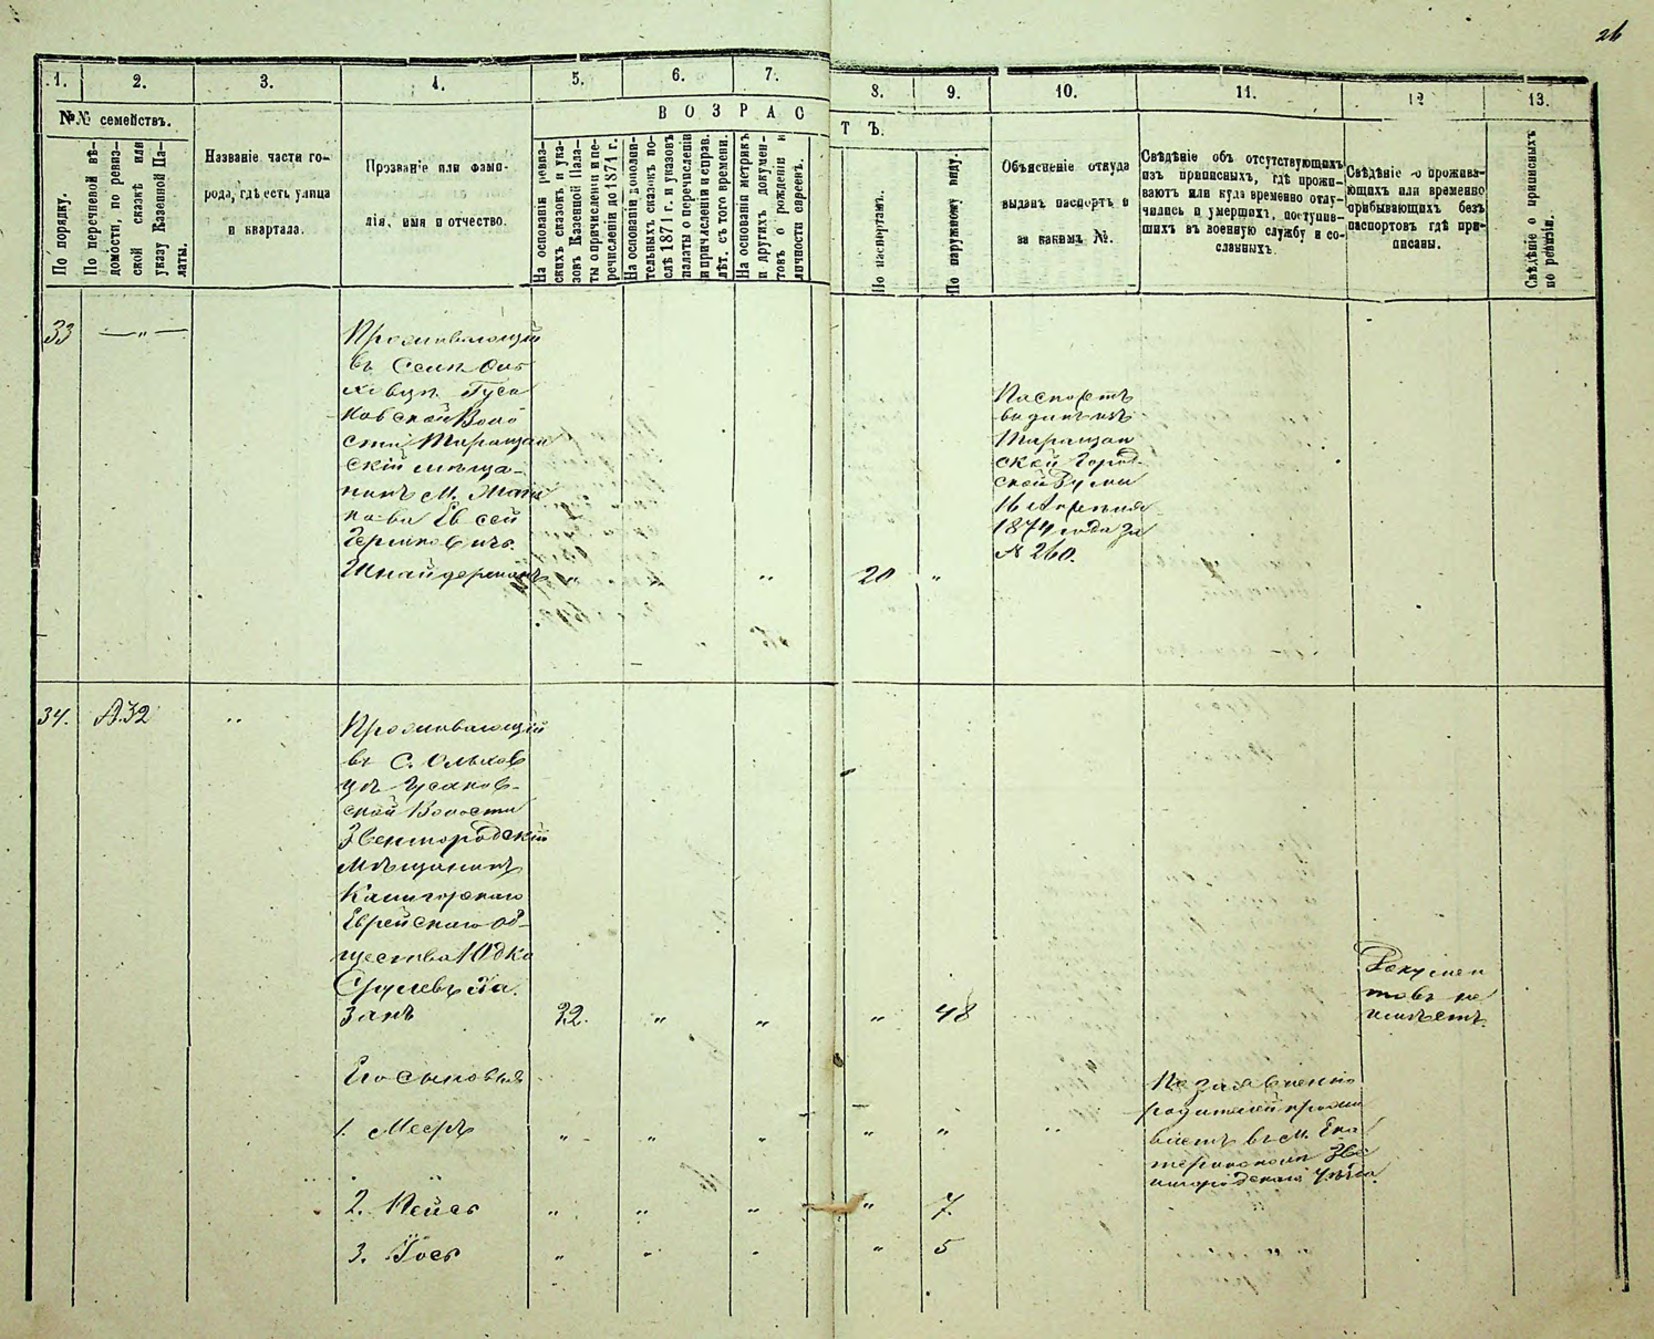 26
1. 2. 3. 4. 5. 6. 7. 8. 9. 10. 11. 12 13.
№№ семействъ.
В О З Р А С Т Ъ.
По порядку.
По перечневой вѣ-
домости, по ревиз-
ской сказкѣ или
указу Казенной Па-
латы.
Названіе части го-
рода, гдѣ есть улица
и квартала.
Прозваніе или фами-
лія, имя и отчество.
На основаніи ревиз-
скихъ сказокъ и ука-
зовъ Казенной Пала-
ты о причисленіи и пе-
речисленіи до 1871 г.
На основаніи дополни-
тельныхъ сказокъ по-
слѣ 1871 г. и указовъ
палаты о перечисленіи
и причисленіи и справ.
лѣт. съ того времени.
На основаніи метрикъ
и другихъ докумен-
товъ о рожденіи и
личности евреевъ.
По паспортамъ.
По наружному виду.
Объясненіе откуда
выданъ паспортъ и
за какимъ №.
Свѣдѣніе объ отсутствующихъ
изъ приписныхъ, гдѣ прожи-
ваютъ или куда временно отлу-
чились и умершихъ, поступив-
шихъ въ военную службу и со-
сланныхъ.
Свѣдѣніе о прожива-
ющихъ или временно
прибывающихъ безъ
паспортовъ гдѣ при-
писаны.
Свѣдѣніе о приписныхъ
по ревизіи.
33 — „ —
Проживающій
въ Селѣ Оль
ховцѣ Гуса
ковской Воло
сти Таращан
скій мѣща-
нинъ М.
Евсей
Гершковичъ
Шнайдерманъ „ „ 20 „
Паспортъ
виданъ изъ
Таращан
ской Город
ской Думи
16 Апрѣля
1874 года за
№ 260.
34. №32 „
Проживающій
въ С. Ольхов
цѣ Гусаков-
ской Волости
Звенигородскій
Мѣщанинъ
Еврейскаго об-
щества Юдко
Срулевъ
занъ 32. „ „ „ 48
Докумен
товъ не
имѣетъ.
Его сыновья
1. Мееръ „ „ „ „ „ „
По заявленію
родителей прожи
ваетъ въ М. Ека
теринополѣ Зве
нигородскаго Уѣзда.
2. Лейбъ „ „ „ „ 7.
3. Іось „ „ „ „ 5